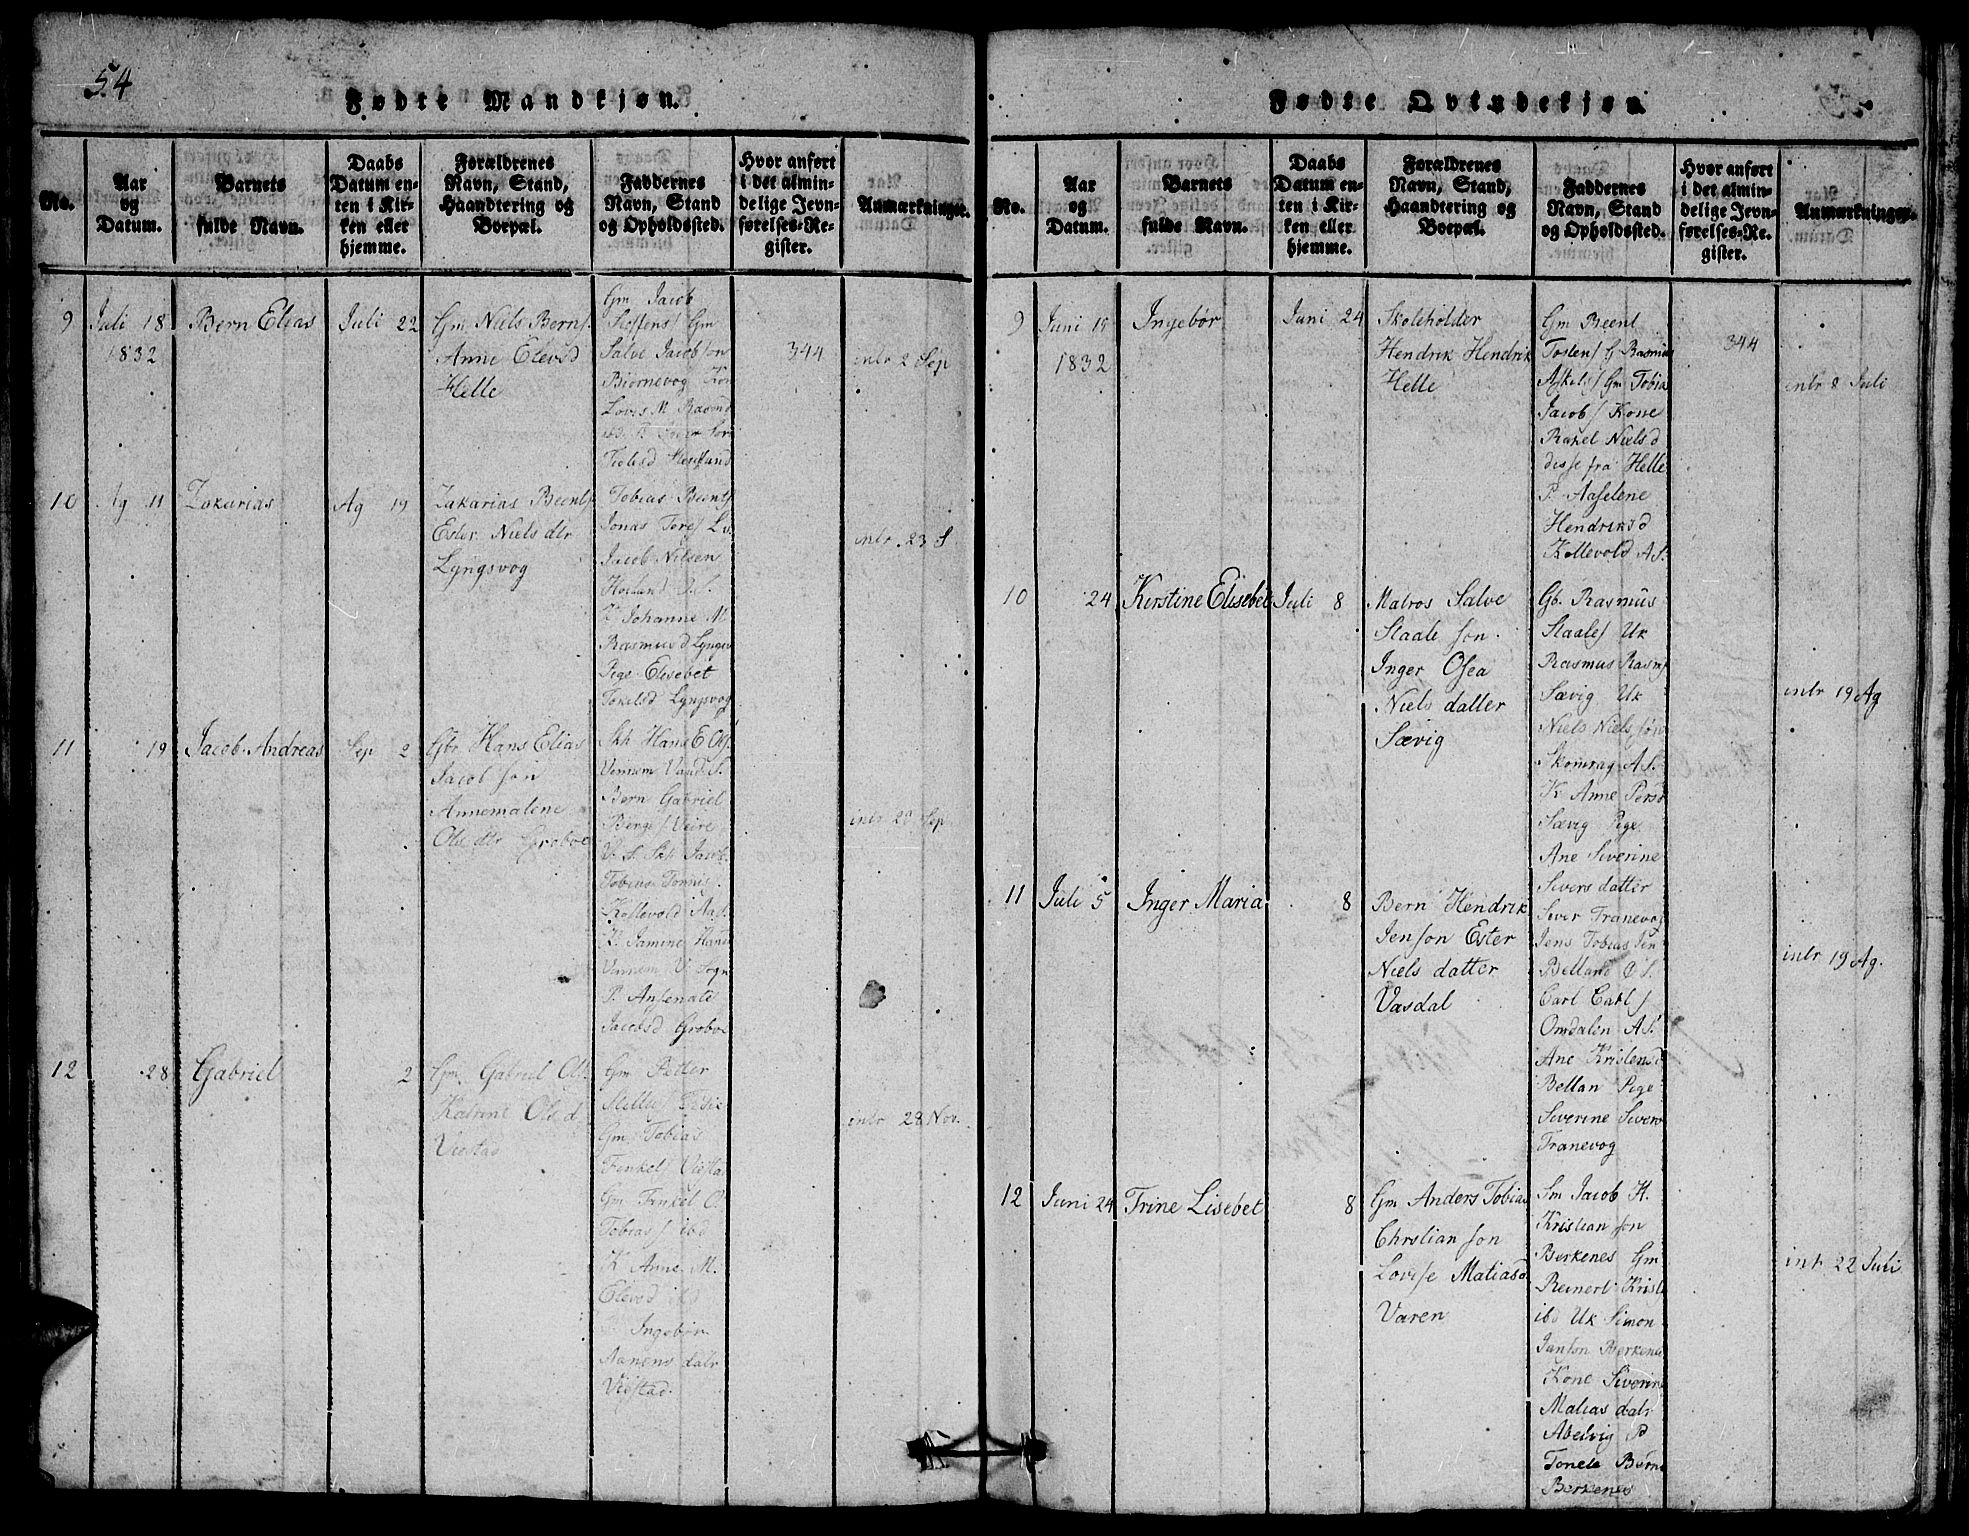 54
Fødte Mandkjøn.
No.
Aar
og
Datum.
Barnets
fulde Navn.
Daabs
Datum en-
ten i Kir-
ken eller
hjemme.
Forældrenes
Navn, Stand,
Haandtering og
Boepæl.
Faddernes
Navn, Stand
og Opholdssted.
Hvor anført
i det almin-
delige Jevn-
førelses-Re-
gister.
Anmærkninger.
9
Juli 18
1832
Bern Elias
Juli 22
Gm Niels Berns
Anne Elevsd
Helle
Gm Jacob
Gm
Salve Jacobson
Biørnevog
Lovis M Rasmd
344
intr 2 Sep
10
Ag 11
Zakarias
Ag 19
Zakarias Beents
Ester Niels dtr
Lyngsvog
Tobias Beents
Jonas Tores
Jacob Nilsen
Holland O.S.
K Johanne M
Rasmusd Lyngsv
Pige Elisebet
Torkelsd Lyngsvog
intr 23 S
11
19
Jacob Andreas
Sep 2
Gbr Hans Elias
Jacob son
Annemalene
Ols dtr Groboe
Skh Hans E Ols
Vennem Vand S.
Bern Gabriel
V. S. Skh Jacob
Tobias Tønnis
Kollevold Aa S.
K. Jamine Hans
Vennem V. Sogn
P. Ansenate
Jacobsd Groboe
Sep
12
28
Gabriel
2
Gm. Gabriel Ols
Katrine Ols d
Viestad
Gm Petter
Gm Tobias
Tenkels Viestad
Gm Tenkel O.
Tobias ibd
K Anne M.
Elevsd ibd
Ingebør
Aanens datr
Viestad.
intr 28 Nov.
Fødte Qvindekjøn
No.
Aar
og
Datum.
Barnets
fulde Navn.
Daabs
Datum en-
ten i Kir-
ken eller
hjemme.
Forældrenes
Navn, Stand,
Haandtering og
Boepæl.
Faddernes
Navn, Stand
og Opholdssted.
Hvor anført
i det almin-
delige Jevn-
førelses-Re-
gister.
Anmærkninger.
9
Juni 15
1832
Ingebor
Juni 24
Skoleholder
Hendrik Hendrik
Helle
Gm Beent
Tostens G Rasmus
Askels Gm Tobia
Jacobs Kone
Rakel Nielsd
disse fra Helle
P. Aaselene
Hendriksd
Kollevold A S.
344
intr 8 Juli
10
24
Kirstine Elisebet
Juli 8
Matros Salve
Staale son
Inger Osea
Niels datter
Sævig
Gb. Rasmus
Staales Uk
Rasmus Rasms
Sævig Uk
Niels Niels søn
Skomrag A S.
K Anne Persd
Sævig Pige
Ane Siverine
Sivers datter
Siver Tranevog
intr 19 Ag
11
Juli 5
Inger Maria
8
Bern Hendrik
Jenson Ester
Niels datter
Vasdal
Jens Tobias Jen
Belland O S.
Carl Carls
Omdalen A S.
Ane Kristensd
Bellan Pige
Siverine Sivers
Tranevog
intr 19 Ag.
12
Juni 24
Trine Lisebet
8
Gm Anders Tobias
Christian son
Lovise Matiasd
Varen
Sm Jacob K.
Kristian son
Berkenes Gm
Reinert Krist
ibd Uk Simon
Janson Berkenes
Kone Siverine
Matias datr
Abelvig P
Tonete Berns
Berkenes
intr 22 Juli